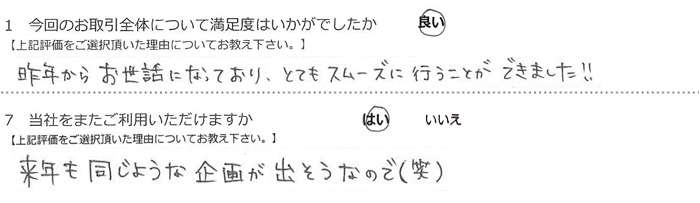 1 今回のお取引全体について満足度はいかがでしたか 良い
【上記評価をご選択頂いた理由についてお教え下さい。】
昨年からお世話になっており、とてもスムーズに行うことができました!!
7 当社をまたご利用いただけますか はい いいえ
【上記評価をご選択頂いた理由についてお教え下さい。】
来年も同じような企画が出そうなので(笑)